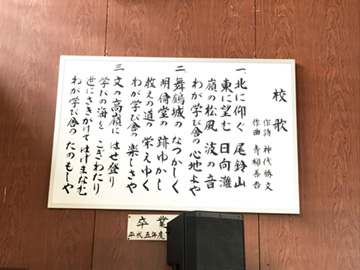 校歌
作詩 神代勝文
作曲 青柳善吾
一、北に仰ぐ 尾鈴山
東に望む 日向灘
嶺の松風 波の音
わが学び舎の 心地よや
二、舞鶴城の なつかしく
明倫堂の 跡ゆかし
教えの道の 栄えゆく
わが学び舎の 楽しさや
三、文の高嶺に はせ登り
学びの海を こぎわたり
世にさきがけて はげまなむ
わが学び舎の たのもしや
卒業
平成五年度